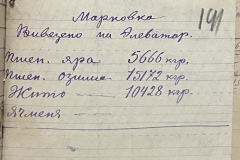 191
Марковка
Вивезено на Елеватор.
Пшен. яра 5666 кгр.
Пшен. озима 15172 кгр.
Жито — 10428 кгр.
Ячменя —